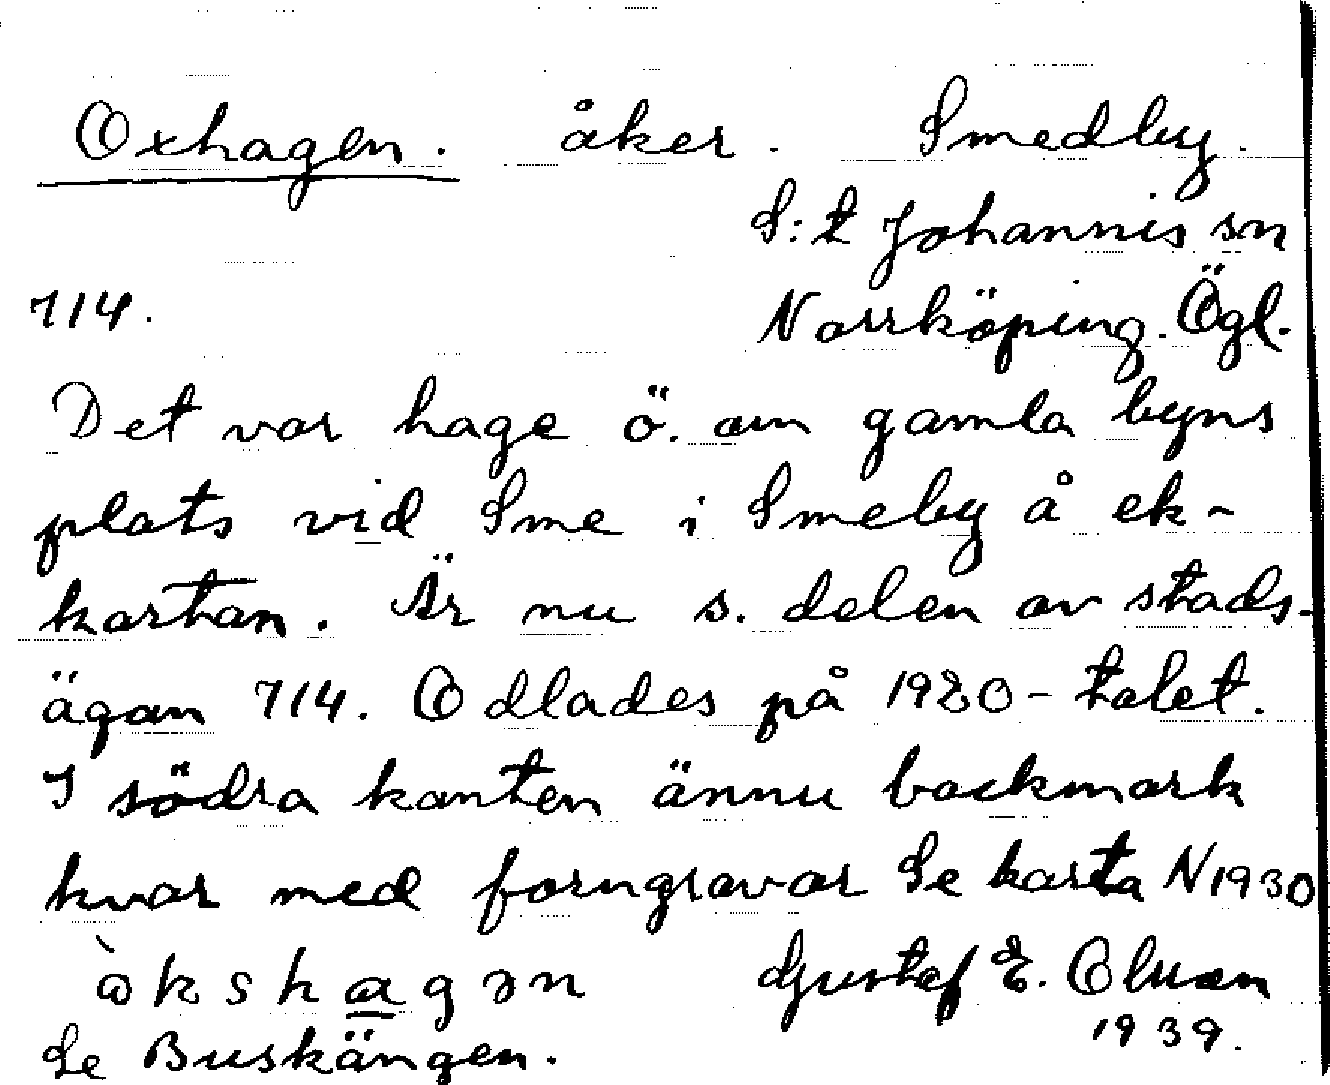 Oxhagen. åker. Smedby.
S:t Johannis sn
714. Norrköping. Ögl.
Det var hage ö. om gamla byns
plats vid Sme i Smeby å ek-
kartan. Är nu s. delen av stads-
ägan 714. Odlades på 1920-talet.
I södra kanten ännu backmark
kvar med forngravar Se karta N1930
òkshagən Gustaf E.
1939.
Se Buskängen.